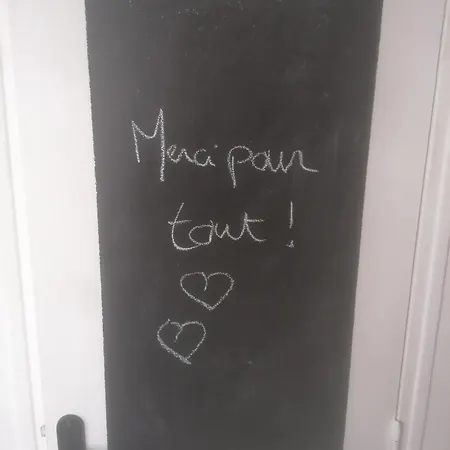 Merci pour
tout !